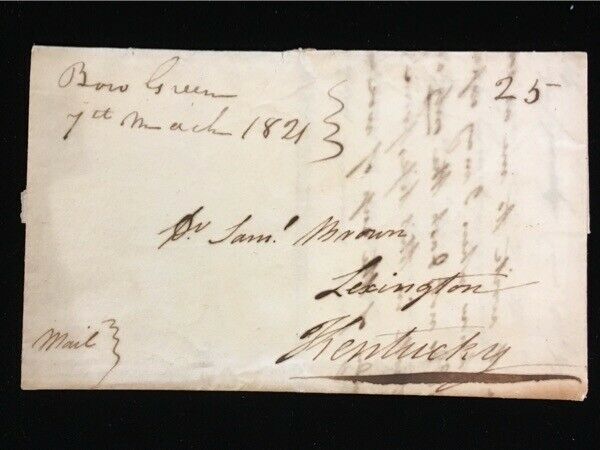 Bow Green
7th March 1821
25
Dr Saml. Brown
Lexington
Kentucky
Mail